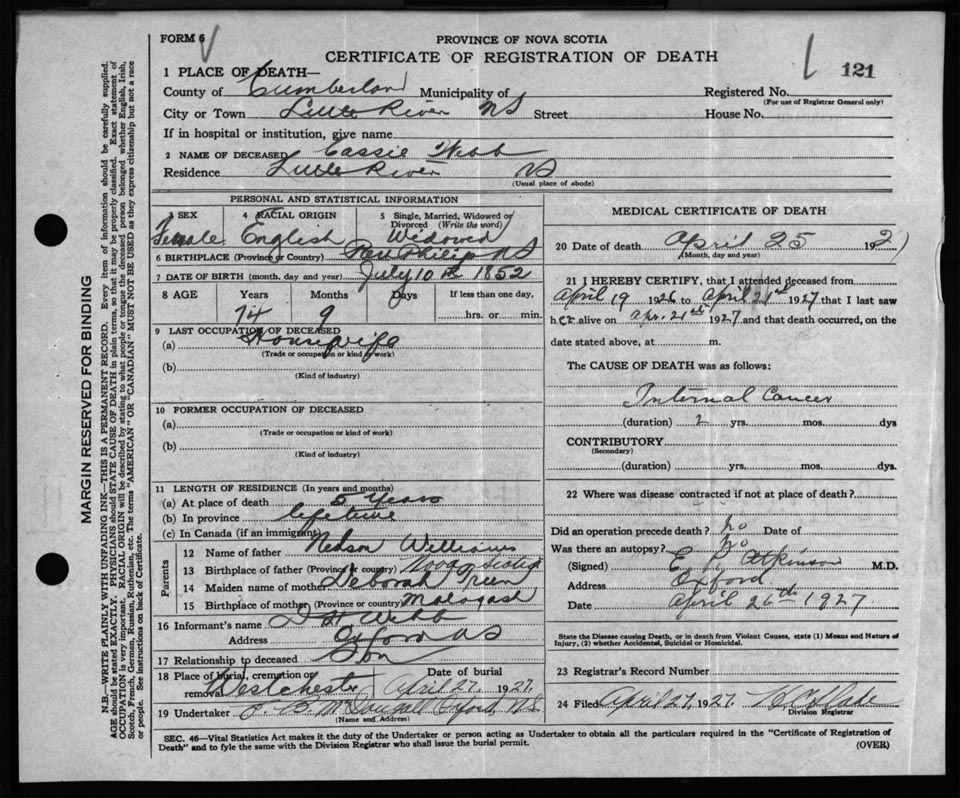 FORM 6
PROVINCE OF NOVA SCOTIA
CERTIFICATE OF REGISTRATION OF DEATH
121
1 PLACE OF DEATH—
County of Cumberland Municipality of
Registered No.
(For use of Registrar General only)
City or Town Little River NS Street House No.
If in hospital or institution, give name
2 NAME OF DECEASED Cassie Webb
Residence Little River NS
(Usual place of abode)
PERSONAL AND STATISTICAL INFORMATION
3 SEX 4 RACIAL ORIGIN 5 Single, Married, Widowed or Divorced (Write the word)
Female English Widowed
6 BIRTHPLACE (Province or Country) Philip NS
7 DATE OF BIRTH (month, day and year) July 10th 1852
8 AGE Years Months Days If less than one day,
74 9 hrs. or min.
9 LAST OCCUPATION OF DECEASED
(a) Housewife
(Trade or occupation or kind of work)
(b)
(Kind of industry)
10 FORMER OCCUPATION OF DECEASED
(a)
(Trade or occupation or kind of work)
(b)
(Kind of industry)
11 LENGTH OF RESIDENCE (In years and months)
(a) At place of death 5 Years
(b) In province lifetime
(c) In Canada (if an immigrant)
Parents
12 Name of father Nelson Williams
13 Birthplace of father (Province or country) Nova Scotia
14 Maiden name of mother Deborah
15 Birthplace of mother (Province or country) Malagash
16 Informant's name D H Webb
Address Oxford NS
17 Relationship to deceased Son
18 Place of burial, cremation or removal Westchester Date of burial April 27, 1927
19 Undertaker Oxford, NS
(Name and Address)
MEDICAL CERTIFICATE OF DEATH
20 Date of death April 25 1927
(Month, day and year)
21 I HEREBY CERTIFY, that I attended deceased from
April 19 1926 to April 21st 1927 that I last saw
her alive on Apr. 21st 1927 and that death occurred, on the
date stated above, at m.
The CAUSE OF DEATH was as follows:
Internal Cancer
(duration) 2 yrs. mos. dys
CONTRIBUTORY
(Secondary)
(duration) yrs. mos. dys.
22 Where was disease contracted if not at place of death?
Did an operation precede death? no Date of
Was there an autopsy? no
(Signed) E Atkinson M.D.
Address Oxford
Date April 26th 1927
State the Disease causing Death, or in death from Violent Causes, state (1) Means and Nature of
Injury, (2) whether Accidental, Suicidal or Homicidal.
23 Registrar's Record Number
24 Filed April 27, 1927
Division Registrar
SEC. 46—Vital Statistics Act makes it the duty of the Undertaker or person acting as Undertaker to obtain all the particulars required in the "Certificate of Registration of
Death" and to fyle the same with the Division Registrar who shall issue the burial permit.
(OVER)
MARGIN RESERVED FOR BINDING
N.B.—WRITE PLAINLY WITH UNFADING INK—THIS IS A PERMANENT RECORD. Every item of information should be carefully supplied.
AGE should be stated EXACTLY. PHYSICIANS should STATE CAUSE OF DEATH in plain terms, so that it may be properly classified. Exact statement of
OCCUPATION is very important. RACIAL ORIGIN will be described by stating to what people or tongue the deceased person belonged whether English, Irish,
Scotch, French, German, Russian, Ruthenian, etc. The terms "AMERICAN" or "CANADIAN" MUST NOT BE USED as they express citizenship but not a race
or people. See instructions on back of Certificate.